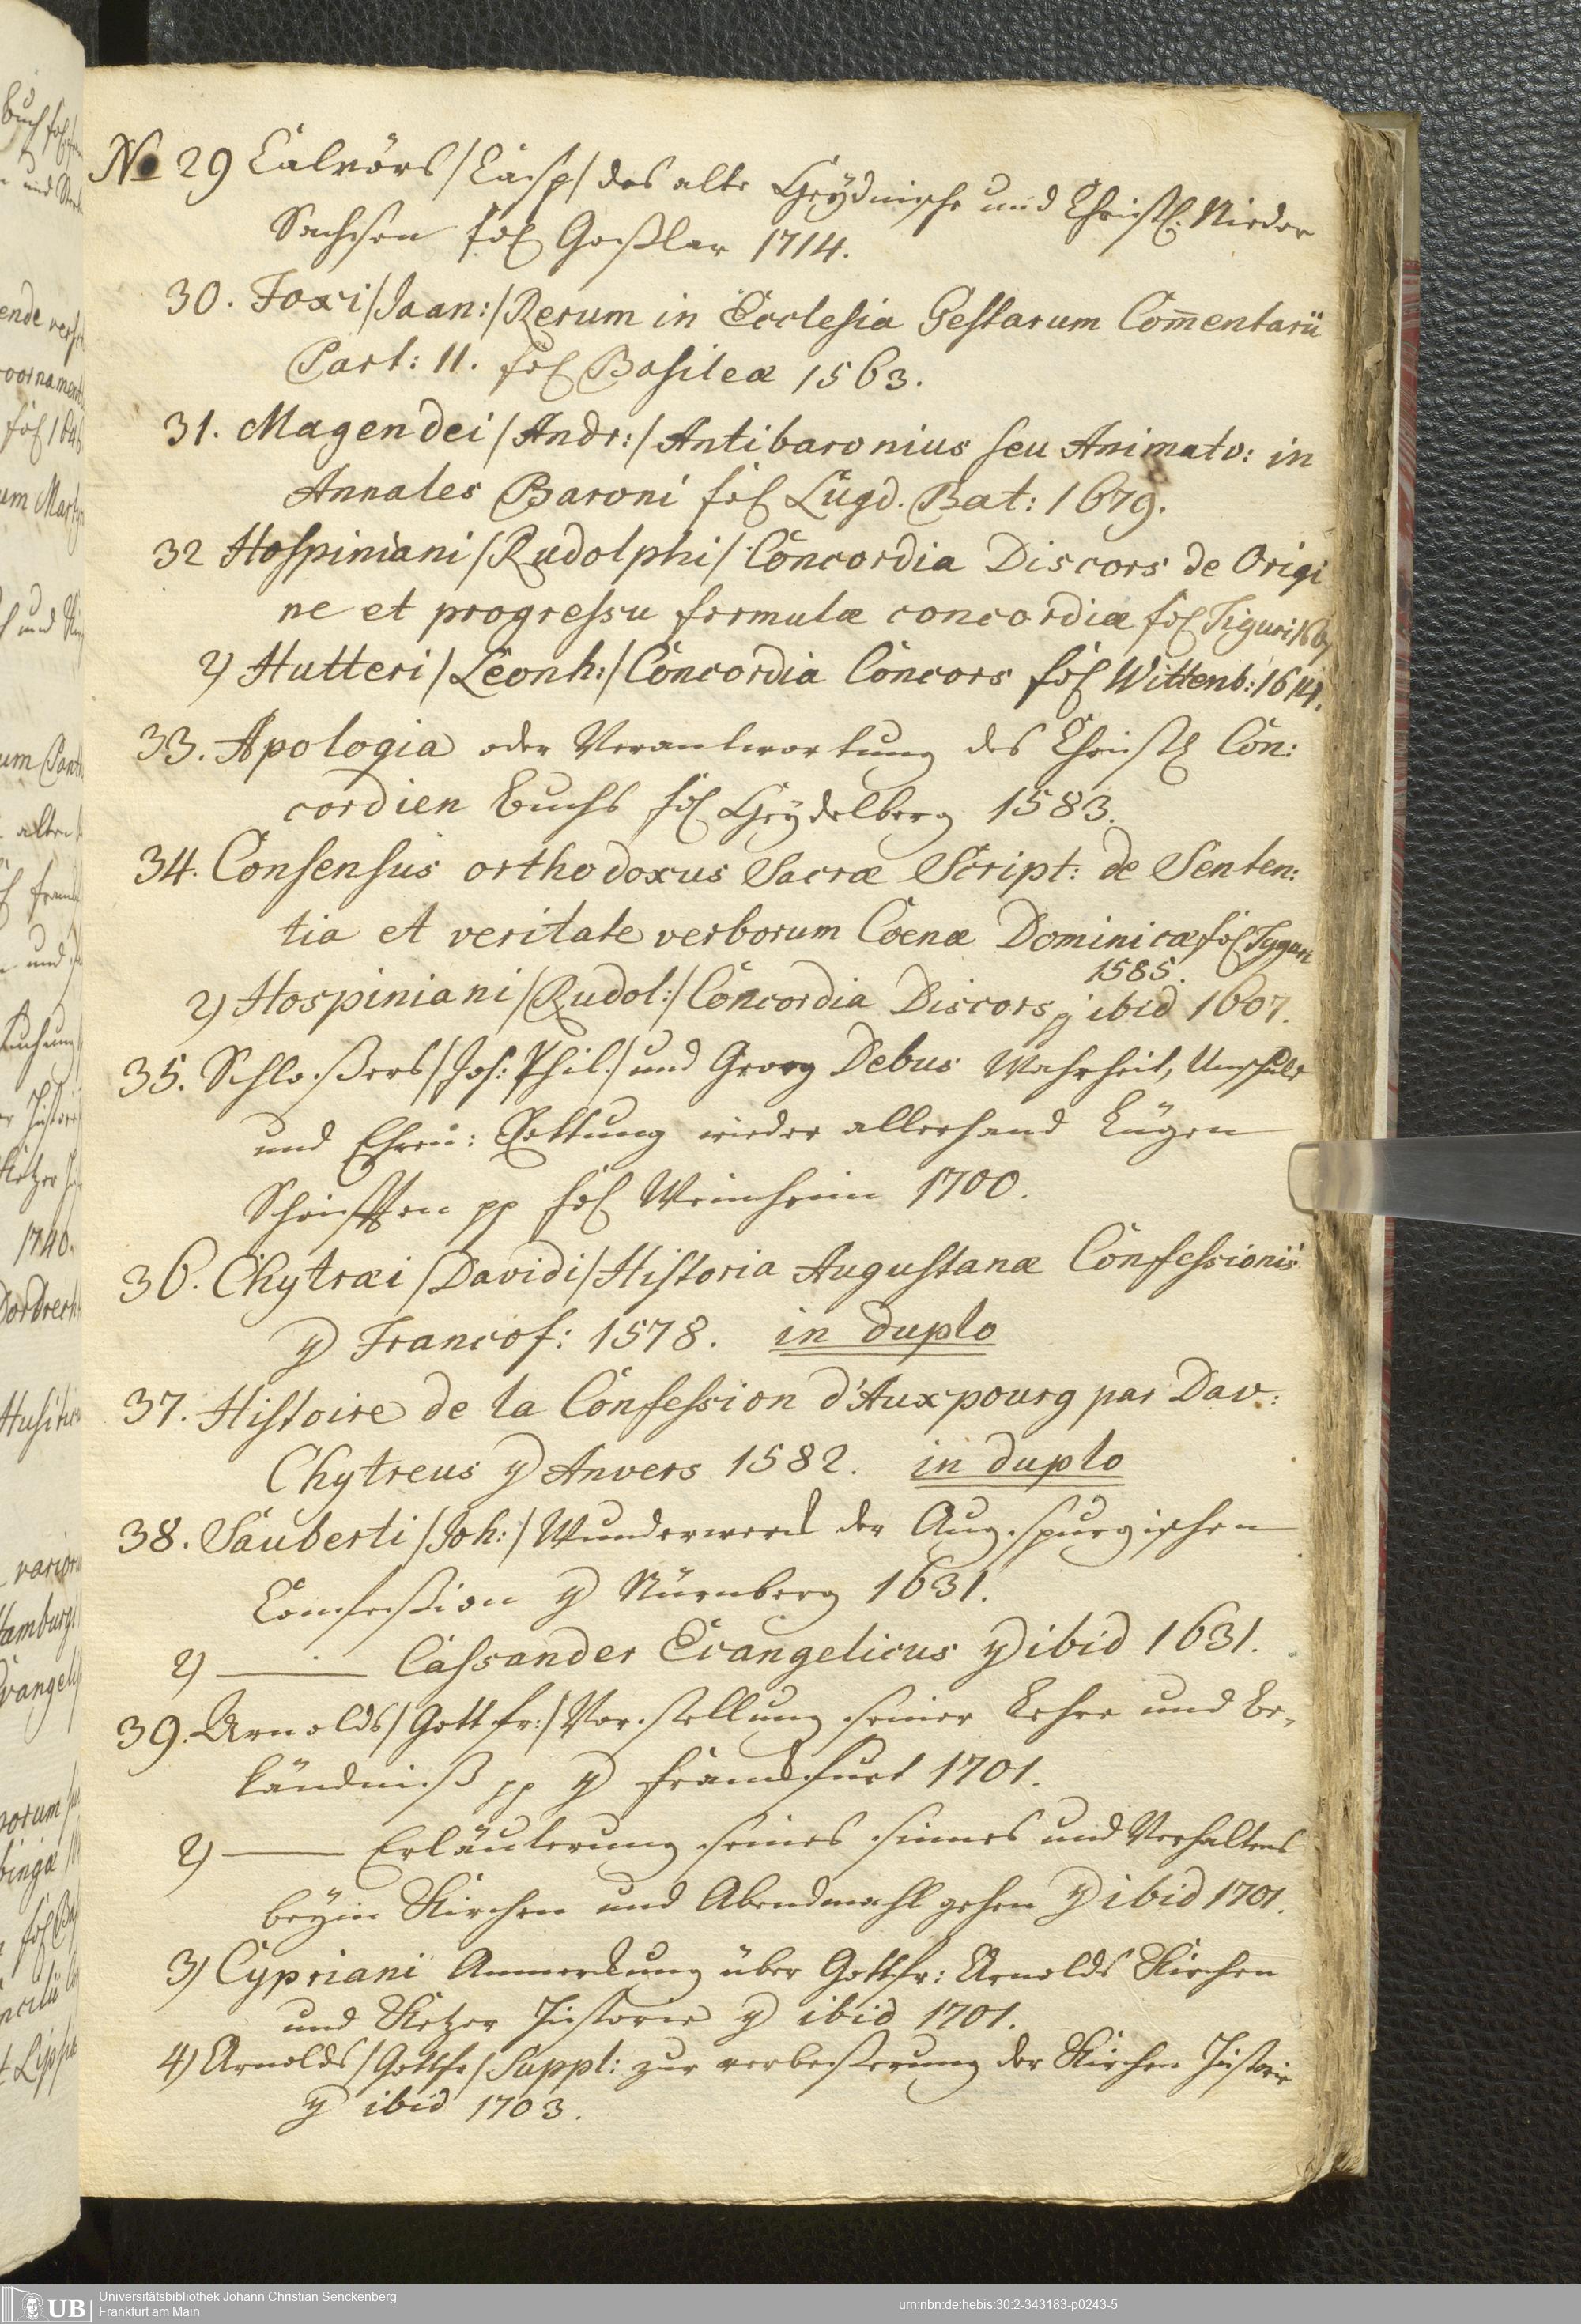 No 29 Calvörs /Casp/ das alte Heydnische und Christl. Nieder
Sachsen fol Goßlar 1714.
30. Foxi /Joan:/ Rerum in Ecclesia Gestarum Com̄entarii
Part: II. fol Basileæ 1563.
31. Magendei /Andr:/ Antibaronius seu Animatv: in
Annales Baroni fol Lugd. Bat: 1679.
32 Hospiniani /Rudolphi/ Concordia Discors de Origi
ne et progressu formulæ concordiæ fol Tiguri 1607
2) Hutteri /Leonh:/ Concordia Concors fol Wittenb: 1614.
33. Apologia oder Verantwortung des Christl Con:
cordien Buchs fol Heydelberg 1583.
34. Consensus orthodoxus Sacræ Script: de Senten:
tia et veritate verborum Coenæ Dominicæ fol Tyguri
1585.
2) Hospiniani /Rudol:/ Concordia Discors ibid 1607.
35. Schloßers /Joh: Phil:/ und Georg Debus Wahrheit, Unschuld
und Ehren: Rettung wieder allerhand Lügen
Schrifften pp fol Weinheim 1700.
36. Chytræi /Davidi/ Historia Augustanæ Confessionis
4 Francof: 1578. in duplo
37. Histoire de la Confession d'Auxpourg par Dav:
Chytreus 4 Anvers 1582. in duplo
38. Sauberti /Joh:/ Wunderwerck der Augspurgischen
Confeßion 4 Nürnberg 1631.
2) ——— Cassander Evangelicus 4 ibid 1631.
39. Arnolds /Gottfr:/ Vorstellung seiner Lehre und Be,
kändniß pp 4 Franckfurt 1701.
2) ——— Erläuterung seines sinnes und Verhaltens
beyin Kirchen und Abendmahl gehen 4 ibid 1701.
3) Cypriani Anmerckung über Gottfr: Arnolds Kirchen
und Ketzer Historie 4 ibid 1701.
4) Arnolds /Gottfr/ Suppl: zur verbeßerung der Kirchen Historie
4 ibid 1703.
UB Universitätsbibliothek Johann Christian Senckenberg
Frankfurt am Main
urn:nbn:de:hebis:30:2-343183-p0243-5